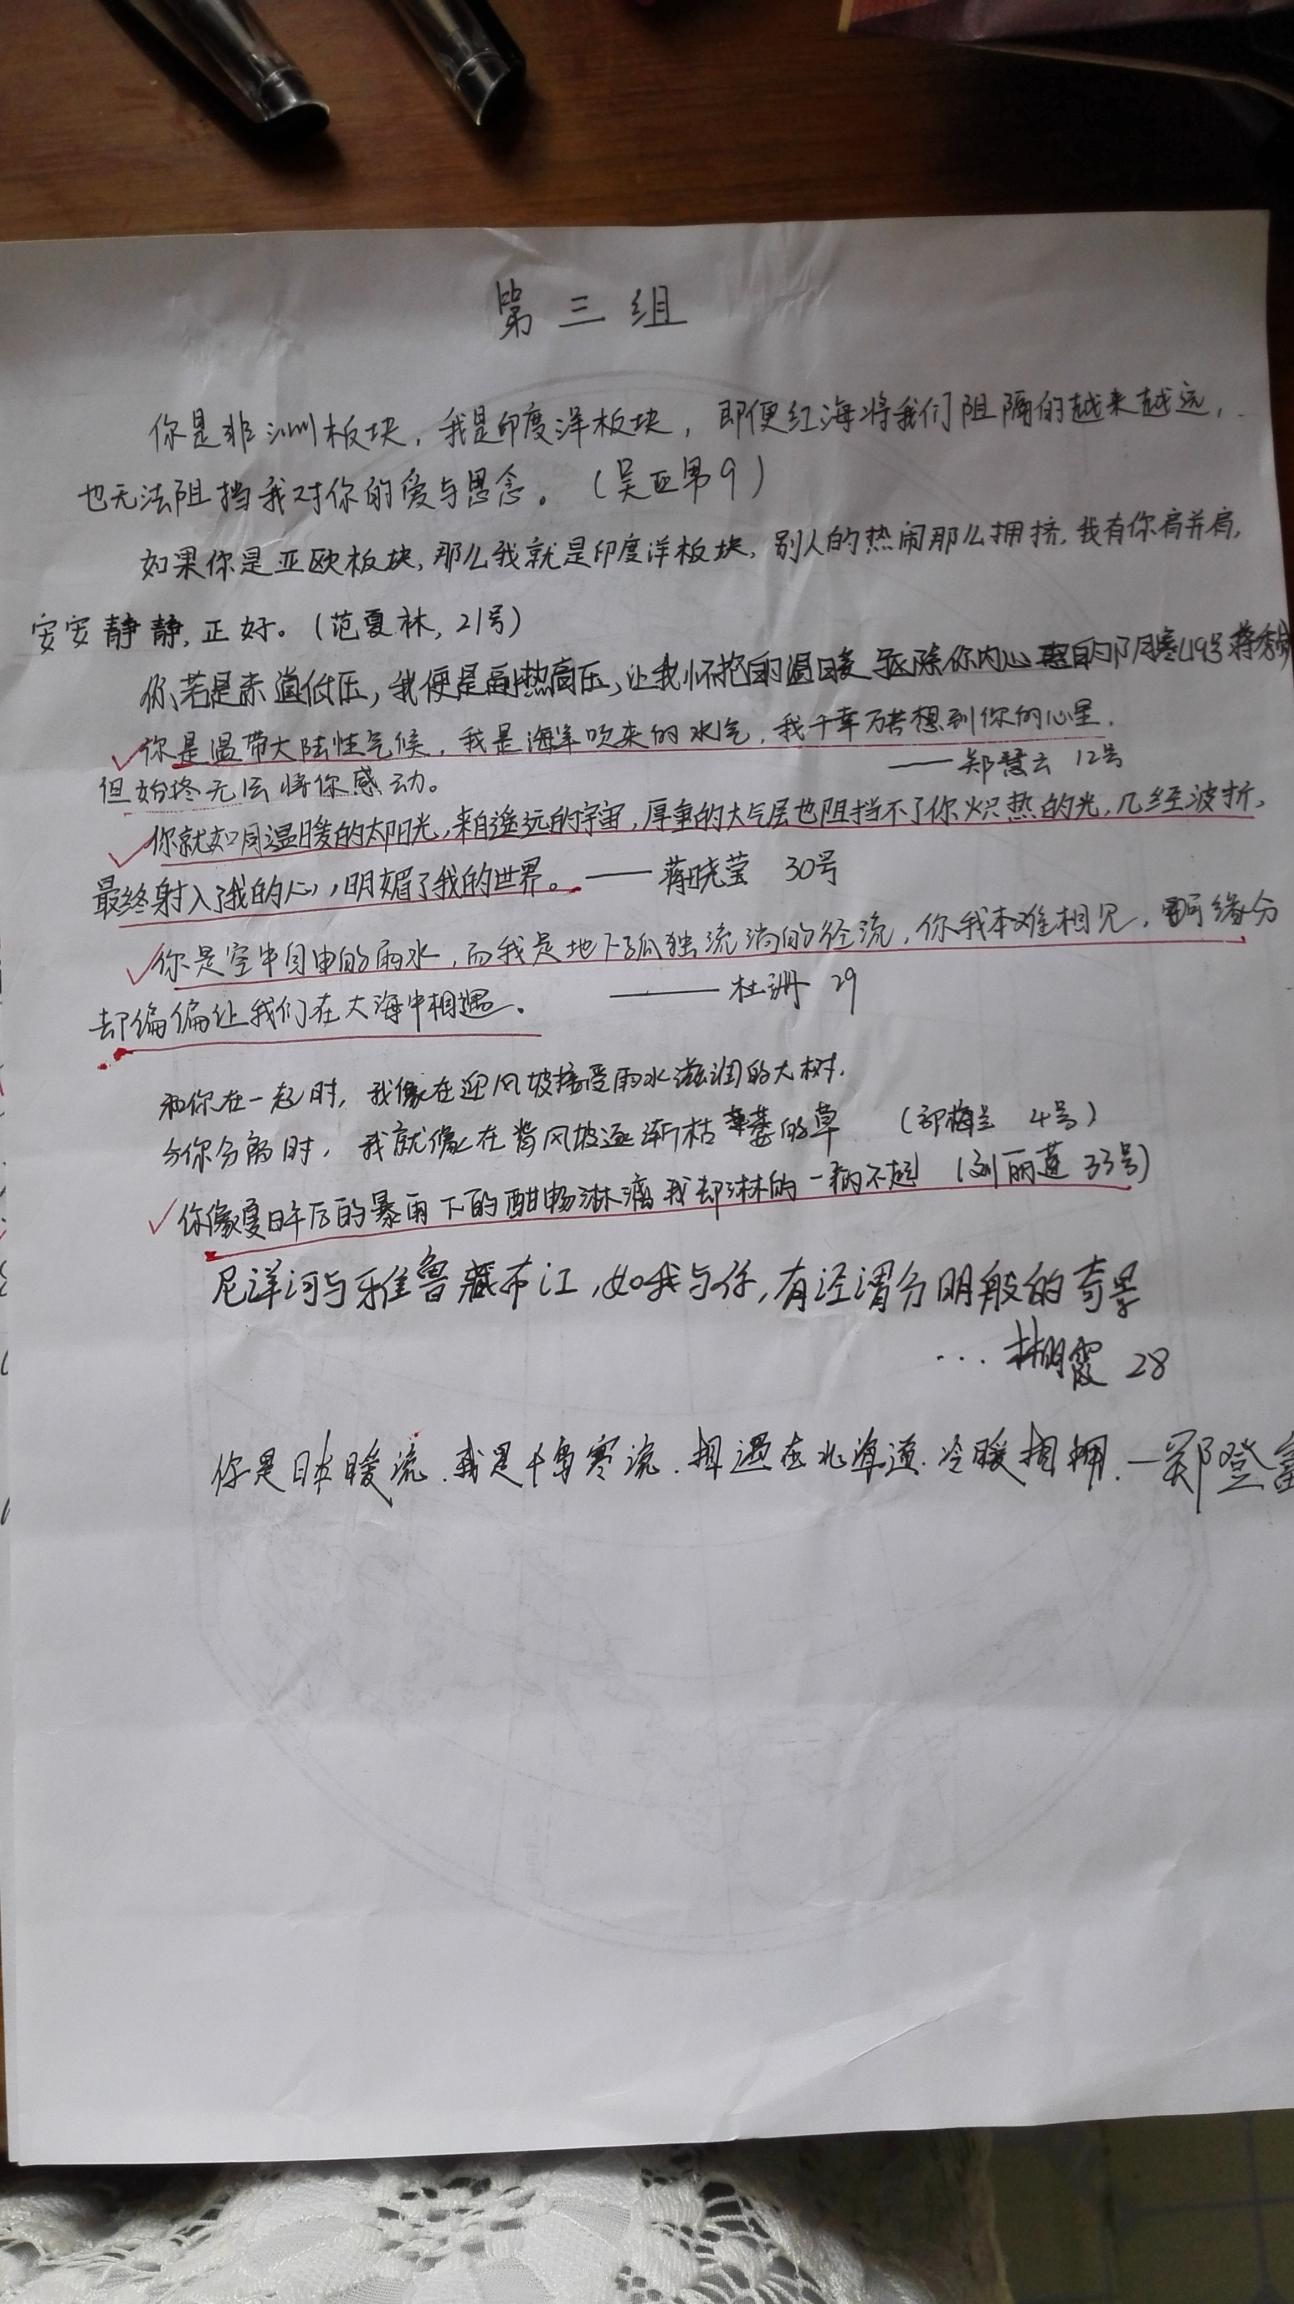 第三组
你是非洲板块，我是印度洋板块，即便红海将我们阻隔的越来越远，
也无法阻挡我对你的爱与思念。（吴亚男9）
如果你是亚欧板块，那么我就是印度洋板块，别人的热闹那么拥挤，我有你肩并肩，
安安静静，正好。（范夏林，21号）
你若是赤道低压，我便是副热高压，让我怀抱的温暖驱除你内心的阴寒（19号蒋秀
你是温带大陆性气候，我是海洋吹来的水气，我千辛万苦想到你的心里，
但始终无法将你感动。 ——郑慧云 12号
你就如同温暖的太阳光，来自遥远的宇宙，厚重的大气层也阻挡不了你火炽热的光，几经波折，
最终射入了我的心，明媚了我的世界。——蒋晓莹 30号
你是空中自由的雨水，而我是地下孤独流淌的径流，你我本难相见，缘分
却偏偏让我们在大海中相遇。 ——杜洲 29
和你在一起时，我像在迎风坡接受雨水滋润的大树，
与你分离时，我就像在背风坡逐渐枯萎的草 （邵梅兰 4号）
你像夏日午后的暴雨下的酣畅淋漓我却淋的一病不起（刘丽莲33号）
尼洋河与雅鲁藏布江，如我与你，有泾渭分明般的奇景
...林明霞 28
你是日本暖流，我是千岛寒流，相遇在北海道，冷暖相拥.—郑登富